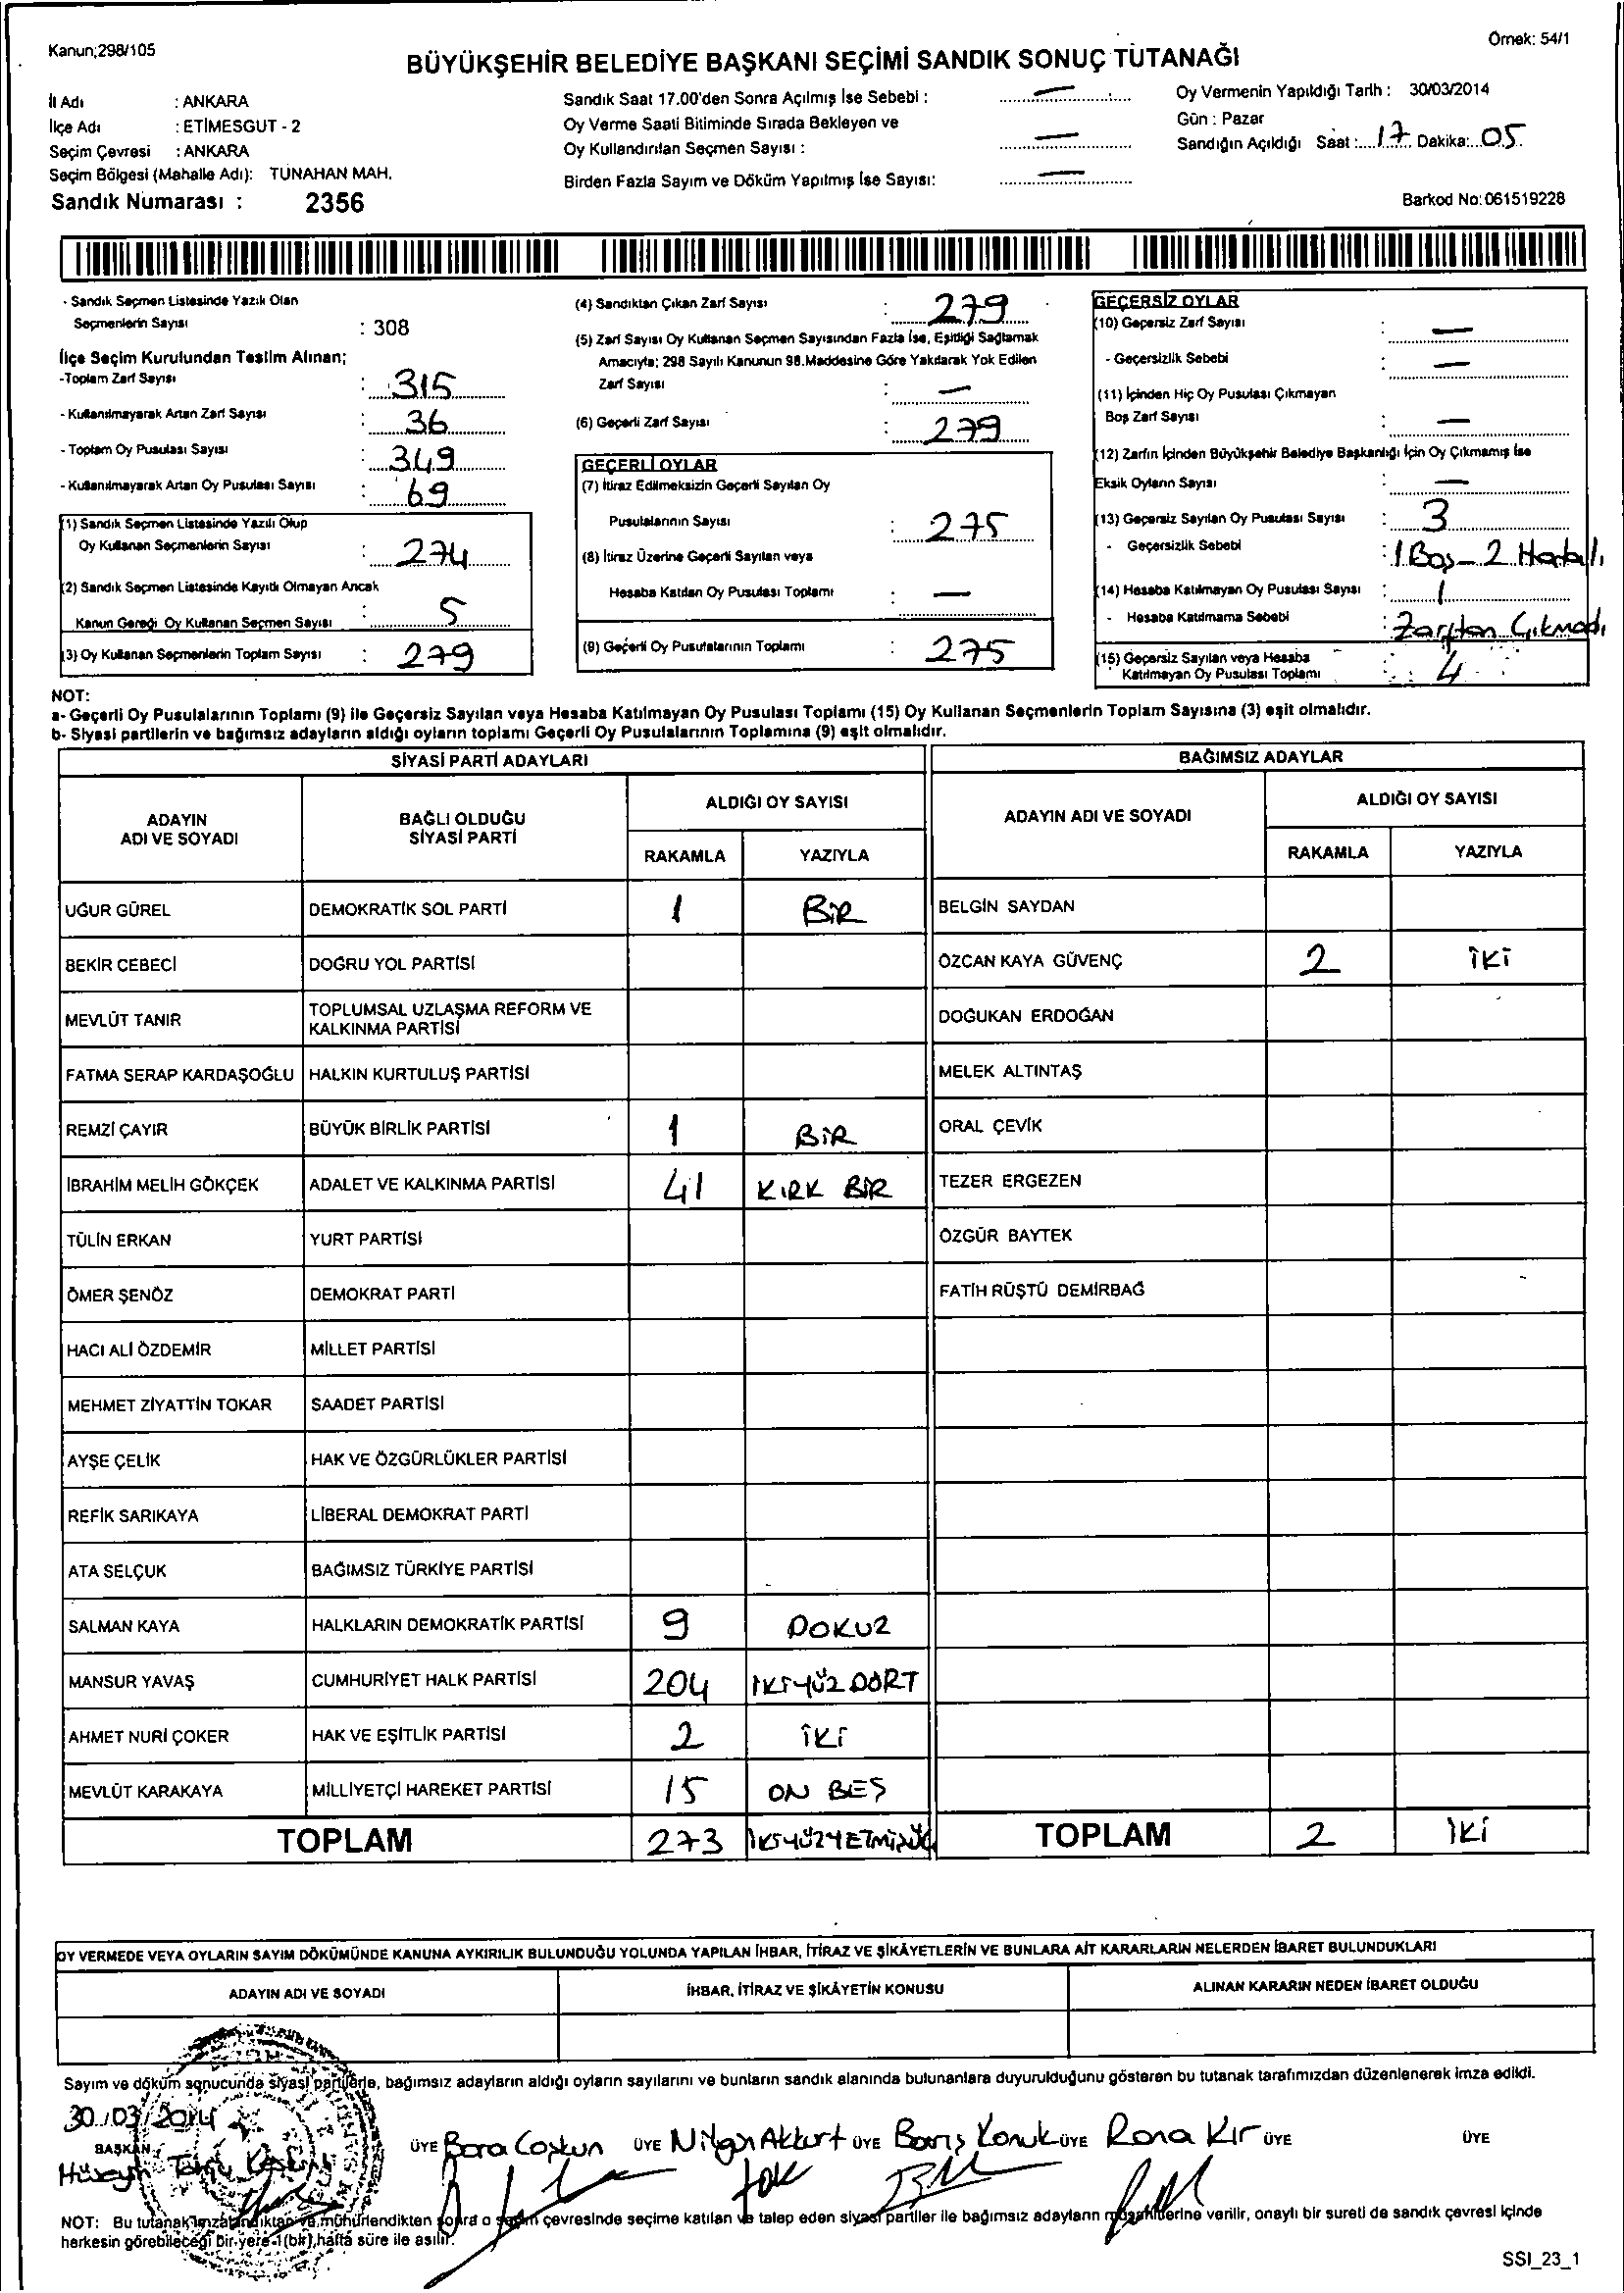 Kanun;298/105
Örnek: 54/1
BÜYÜKŞEHİR BELEDİYE BAŞKANI SEÇİMİ SANDIK SONUÇ TUTANAĞI
İl Adı : ANKARA
İlçe Adı : ETİMESGUT - 2
Seçim Çevresi : ANKARA
Seçim Bölgesi (Mahalle Adı): TUNAHAN MAH.
Sandık Numarası : 2356
Sandık Saat 17.00'den Sonra Açılmış İse Sebebi : —
Oy Verme Saati Bitiminde Sırada Bekleyen ve
Oy Kullandırılan Seçmen Sayısı : —
Birden Fazla Sayım ve Döküm Yapılmış İse Sayısı: —
Oy Vermenin Yapıldığı Tarih : 30/03/2014
Gün : Pazar
Sandığın Açıldığı Saat : 17 Dakika: 05
Barkod No: 061519228
- Sandık Seçmen Listesinde Yazılı Olan
Seçmenlerin Sayısı : 308
İlçe Seçim Kurulundan Teslim Alınan;
-Toplam Zarf Sayısı : 315
- Kullanılmayarak Artan Zarf Sayısı : 36
- Toplam Oy Pusulası Sayısı : 349
- Kullanılmayarak Artan Oy Pusulası Sayısı : 69
(1) Sandık Seçmen Listesinde Yazılı Olup
Oy Kullanan Seçmenlerin Sayısı : 274
(2) Sandık Seçmen Listesinde Kayıtlı Olmayan Ancak
Kanun Gereği Oy Kullanan Seçmen Sayısı : 5
(3) Oy Kullanan Seçmenlerin Toplam Sayısı : 279
(4) Sandıktan Çıkan Zarf Sayısı : 279
(5) Zarf Sayısı Oy Kullanan Seçmen Sayısından Fazla İse, Eşitliği Sağlamak
Amacıyla; 298 Sayılı Kanunun 98.Maddesine Göre Yakılarak Yok Edilen
Zarf Sayısı : —
(6) Geçerli Zarf Sayısı : 279
GEÇERLİ OYLAR
(7) İtiraz Edilmeksizin Geçerli Sayılan Oy
Pusulalarının Sayısı : 275
(8) İtiraz Üzerine Geçerli Sayılan veya
Hesaba Katılan Oy Pusulası Toplamı : —
(9) Geçerli Oy Pusulalarının Toplamı : 275
GEÇERSİZ OYLAR
(10) Geçersiz Zarf Sayısı : —
- Geçersizlik Sebebi : —
(11) İçinden Hiç Oy Pusulası Çıkmayan
Boş Zarf Sayısı : —
(12) Zarfın İçinden Büyükşehir Belediye Başkanlığı İçin Oy Çıkmamış İse
Eksik Oyların Sayısı : —
(13) Geçersiz Sayılan Oy Pusulası Sayısı : 3
- Geçersizlik Sebebi : 1 Boş - 2 Hatalı
(14) Hesaba Katılmayan Oy Pusulası Sayısı : 1
- Hesaba Katılmama Sebebi : Zarftan Çıkmadı
(15) Geçersiz Sayılan veya Hesaba
Katılmayan Oy Pusulası Toplamı : 4
NOT:
a- Geçerli Oy Pusulalarının Toplamı (9) ile Geçersiz Sayılan veya Hesaba Katılmayan Oy Pusulası Toplamı (15) Oy Kullanan Seçmenlerin Toplam Sayısına (3) eşit olmalıdır.
b- Siyasi partilerin ve bağımsız adayların aldığı oyların toplamı Geçerli Oy Pusulalarının Toplamına (9) eşit olmalıdır.
SİYASİ PARTİ ADAYLARI
BAĞIMSIZ ADAYLAR
ADAYIN ADI VE SOYADI
BAĞLI OLDUĞU SİYASİ PARTİ
ALDIĞI OY SAYISI
RAKAMLA YAZIYLA
ADAYIN ADI VE SOYADI
ALDIĞI OY SAYISI
RAKAMLA YAZIYLA
UĞUR GÜREL DEMOKRATİK SOL PARTİ 1 BİR BELGİN SAYDAN
BEKİR CEBECİ DOĞRU YOL PARTİSİ ÖZCAN KAYA GÜVENÇ 2 İKİ
MEVLÜT TANIR TOPLUMSAL UZLAŞMA REFORM VE KALKINMA PARTİSİ DOĞUKAN ERDOĞAN
FATMA SERAP KARDAŞOĞLU HALKIN KURTULUŞ PARTİSİ MELEK ALTINTAŞ
REMZİ ÇAYIR BÜYÜK BİRLİK PARTİSİ 1 BİR ORAL ÇEVİK
İBRAHİM MELİH GÖKÇEK ADALET VE KALKINMA PARTİSİ 41 KIRK BİR TEZER ERGEZEN
TÜLİN ERKAN YURT PARTİSİ ÖZGÜR BAYTEK
ÖMER ŞENÖZ DEMOKRAT PARTİ FATİH RÜŞTÜ DEMİRBAĞ
HACI ALİ ÖZDEMİR MİLLET PARTİSİ
MEHMET ZİYATTİN TOKAR SAADET PARTİSİ
AYŞE ÇELİK HAK VE ÖZGÜRLÜKLER PARTİSİ
REFİK SARIKAYA LİBERAL DEMOKRAT PARTİ
ATA SELÇUK BAĞIMSIZ TÜRKİYE PARTİSİ
SALMAN KAYA HALKLARIN DEMOKRATİK PARTİSİ 9 DOKUZ
MANSUR YAVAŞ CUMHURİYET HALK PARTİSİ 204 İKİYÜZ DÖRT
AHMET NURİ ÇOKER HAK VE EŞİTLİK PARTİSİ 2 İKİ
MEVLÜT KARAKAYA MİLLİYETÇİ HAREKET PARTİSİ 15 ON BEŞ
TOPLAM 273 İKİYÜZYETMİŞÜÇ TOPLAM 2 İKİ
OY VERMEDE VEYA OYLARIN SAYIM DÖKÜMÜNDE KANUNA AYKIRILIK BULUNDUĞU YOLUNDA YAPILAN İHBAR, İTİRAZ VE ŞİKÂYETLERİN VE BUNLARA AİT KARARLARIN NELERDEN İBARET BULUNDUKLARI
ADAYIN ADI VE SOYADI İHBAR, İTİRAZ VE ŞİKÂYETİN KONUSU ALINAN KARARIN NEDEN İBARET OLDUĞU
Sayım ve döküm sonucunda siyasi partilerle, bağımsız adayların aldığı oyların sayılarını ve bunların sandık alanında bulunanlara duyurulduğunu gösteren bu tutanak tarafımızdan düzenlenerek imza edildi.
30/03/2014
BAŞKAN ÜYE Bora Coşkun ÜYE Nilgün Akkurt ÜYE Barış Konuk ÜYE Rona Kır ÜYE ÜYE
Hüseyin
NOT: Bu tutanak imzalandıktan ve mühürlendikten sonra o seçim çevresinde seçime katılan ve talep eden siyasi partiler ile bağımsız adayların müşahitlerine verilir, onaylı bir sureti de sandık çevresi içinde
herkesin görebileceği bir yere 1 (bir) hafta süre ile asılır.
SSI_23_1